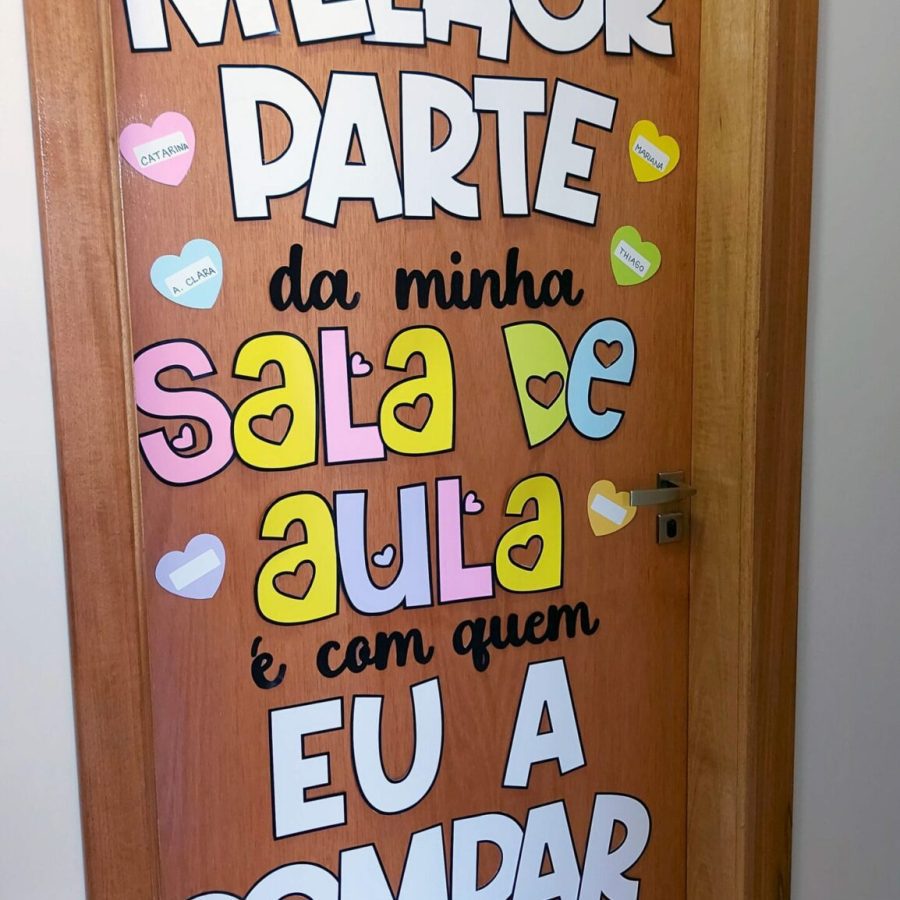 MELHOR
PARTE
CATARINA
MARIANA
da minha
A. CLARA
THIAGO
SALA DE
AULA
é com quem
EU A
COMPAR